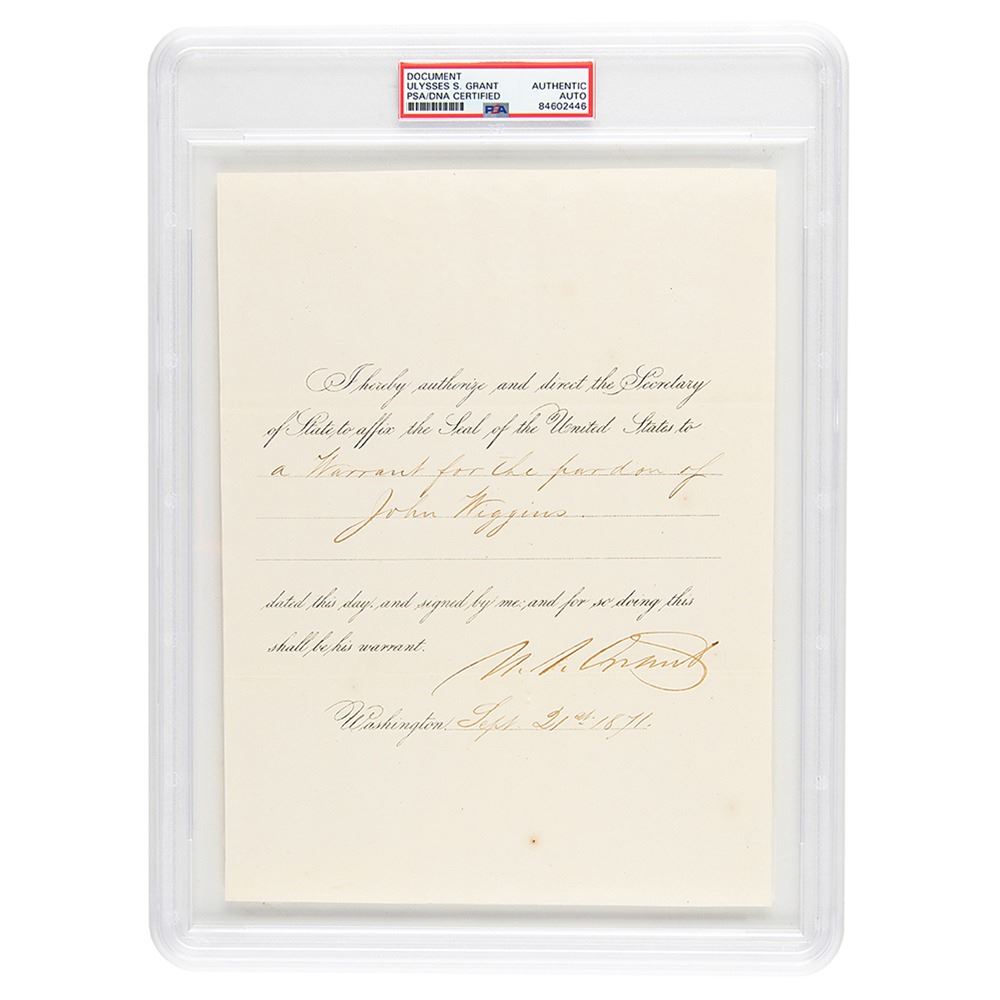 DOCUMENT
ULYSSES S. GRANT
PSA/DNA CERTIFIED
AUTHENTIC
AUTO
84602446
PSA
I hereby authorize and direct the Secretary
of State, to affix the Seal of the United States to
a Warrant for the pardon of
John Wiggins.
dated this day, and signed by me; and for so doing this
shall be his warrant.
U. S. Grant
Washington, Sept. 21st. 1871.